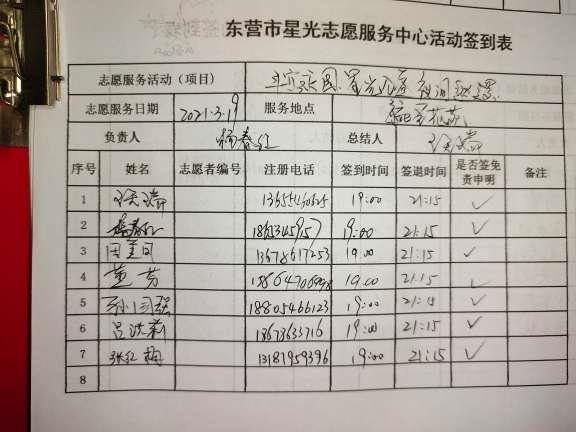 东营市星光志愿服务中心活动签到表
志愿服务活动（项目） 星光
志愿服务日期 2021.3.19 服务地点
负责人 杨春红 总结人
序号 姓名 志愿者编号 注册电话 签到时间 签退时间 是否签免责申明 备注
1 13655460625 19:00 21:15 ✓
2 杨春红 19:00 21:15 ✓
3 田美同 13678617253 19:00 21:15 ✓
4 董芳 19:00 21:15 ✓
5 孙同强 18805466123 19:00 21:15 ✓
6 吕洪莉 18673633716 19:00 21:15 ✓
7 张红梅 13181959396 19:00 21:15 ✓
8